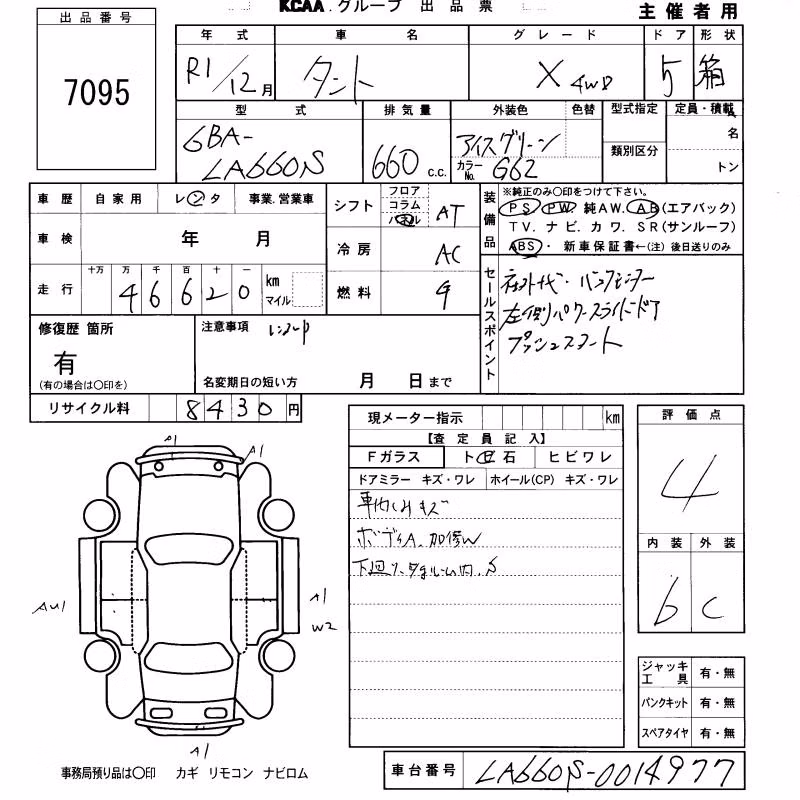 KCAA.グループ 出品票
主催者用
出品番号
7095
年式 車名 グレード ドア 形状
R1/12月 タント X 4WD 5 箱
型式 排気量 外装色 色替 型式指定 定員・積載
6BA-
LA660S 660 c.c. アイスグリーン
カラーNo. G62
類別区分
名
トン
車歴 自家用 レンタ 事業.営業車
車検 年 月
走行 十万 万 千 百 十 一
4 6 6 2 0 km
マイル
シフト フロア
コラム
パネル AT
冷房 AC
燃料
装備品
※純正のみ○印をつけて下さい。
PS PW. 純AW. AB(エアバック)
TV. ナビ. カワ. SR(サンルーフ)
ABS・ 新車保証書←(注) 後日送りのみ
セールスポイント
左側パワースライドドア
プッシュスタート
修復歴 箇所
有
(有の場合は○印を)
注意事項
名変期日の短い方 月 日まで
リサイクル料 8 4 3 0 円
現メーター指示 km
【査定員記入】
Fガラス ト ビ 石 ヒビワレ
ドアミラー キズ・ワレ ホイール(CP) キズ・ワレ
車内シミキズ
ボディA.加修W
評価点
4
内装 外装
b C
A1
A1
AU1
A1
W2
A1
ジャッキ
工具 有・無
パンクキット 有・無
スペアタイヤ 有・無
事務局預り品は○印 カギ リモコン ナビロム
車台番号 LA660S-0014977